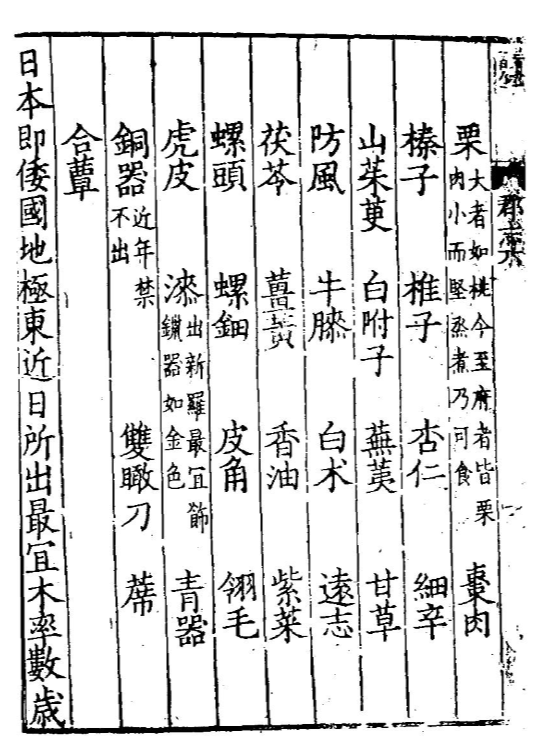 郡志六
栗 大者如桃今至府者皆栗肉小而堅蒸煮乃可食 棗肉
榛子 椎子 杏仁 細辛
山茱萸 白附子 蕪荑 甘草
防風 牛膝 白朮 遠志
茯苓 薑黄 香油 紫菜
螺頭 螺鈿 皮角 翎毛
虎皮 漆 出新羅最宜飾鑞器如金色 青器
銅器 近年禁不出 雙瞰刀 蓆
合蕈
日本即倭國地極東近日所出最宜木率數歲